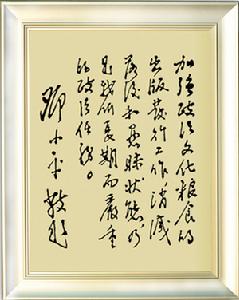 加强政法文化粮食的
出版发行工作消滅
落后和愚昧状态乃
是我们长期而严重
的政治任务。
邓小平敬题